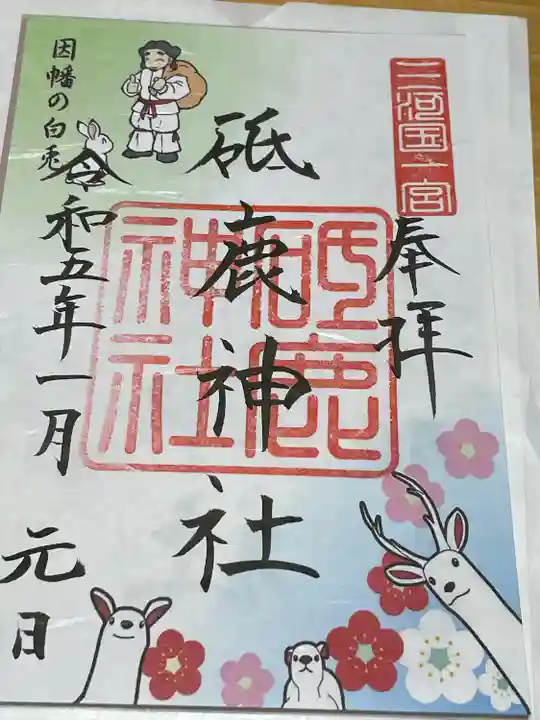 三河国一宮
奉拝
砥鹿神社
砥鹿神社
令和五年一月元日
因幡の白兎